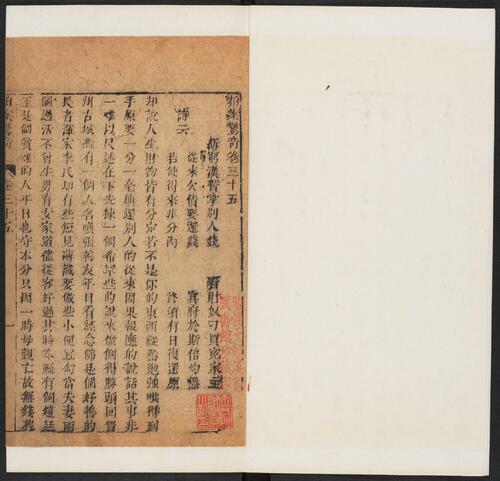 拍案驚奇卷三十五
訴窮漢暫掌別人錢 看財奴刁買冤家主
詩云
從來欠債要還錢 冥府於斯信灼然
若使得來非分內 終須有日復還原
却說人生財物皆有分定若不是你的東西縱然勉強哄得到
手原要一分一毫填還別人的從來因果報應的說話其事非
一難以盡述在下先揀一個希罕些的說來做個得勝頭回晉
州古城縣有一個人名喚張善友平日看經念佛是個好善的
長者渾家李氏却有些短見薄識要做些小便宜勾當夫妻兩
個過活不曾生男育女家道儘從容好過其時本縣有個趙廷
玉是個貧難的人平日也守本分只因一時母親亡故無錢葬
拍案驚奇 卷三十五 一